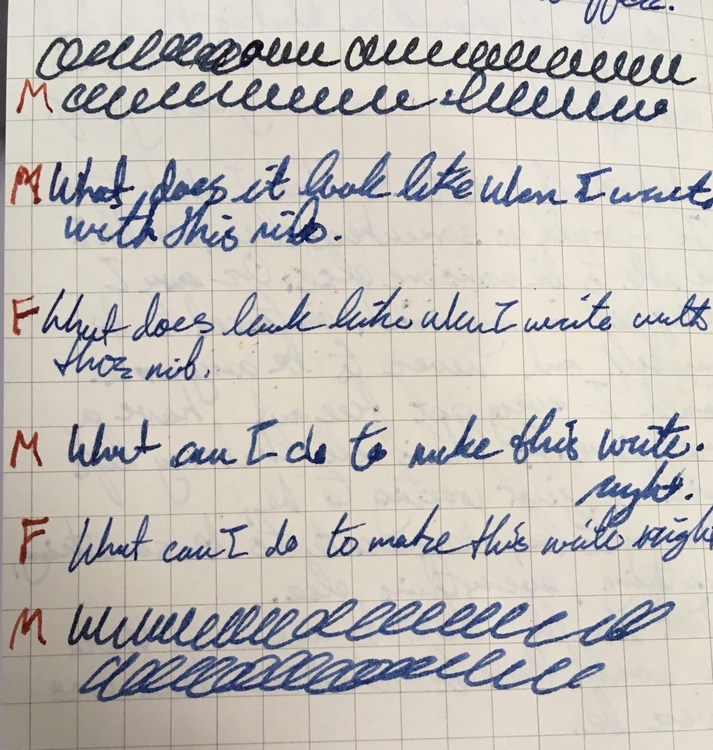 M
M What does it look like when I write
with this nib.
F What does look like when I write with
this nib.
M What can I do to make this write.
right.
F What can I do to make this write right
M